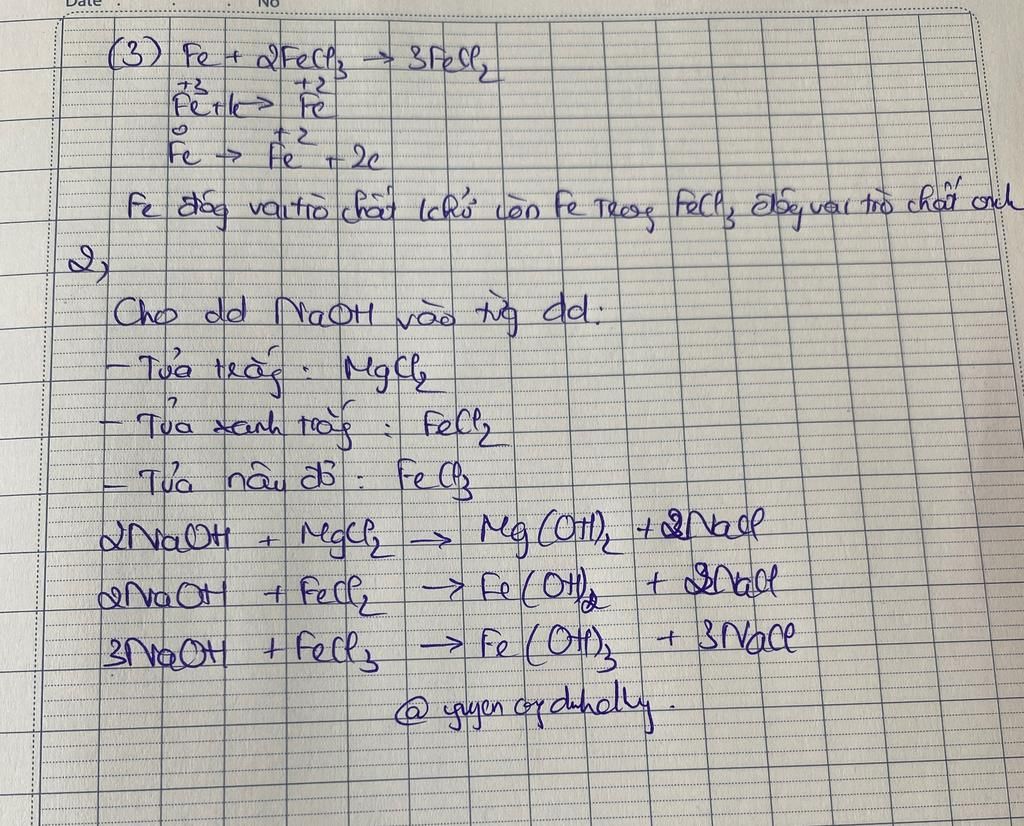 Date No
(3) Fe + 2FeCl₃ → 3FeCl₂
+3 +2
Fe + 1e → Fe
0 +2
Fe → Fe + 2e
Fe đóg vai trò chất khử còn Fe trog FeCl₃ đóg vai trò chất oxh
2,
Cho dd NaOH vào từg dd:
- Tủa trắg : MgCl₂
- Tủa xanh trắg : FeCl₂
- Tủa nâu đỏ : FeCl₃
2NaOH + MgCl₂ → Mg(OH)₂ + 2NaCl
2NaOH + FeCl₂ → Fe(OH)₂ + 2NaCl
3NaOH + FeCl₃ → Fe(OH)₃ + 3NaCl
@